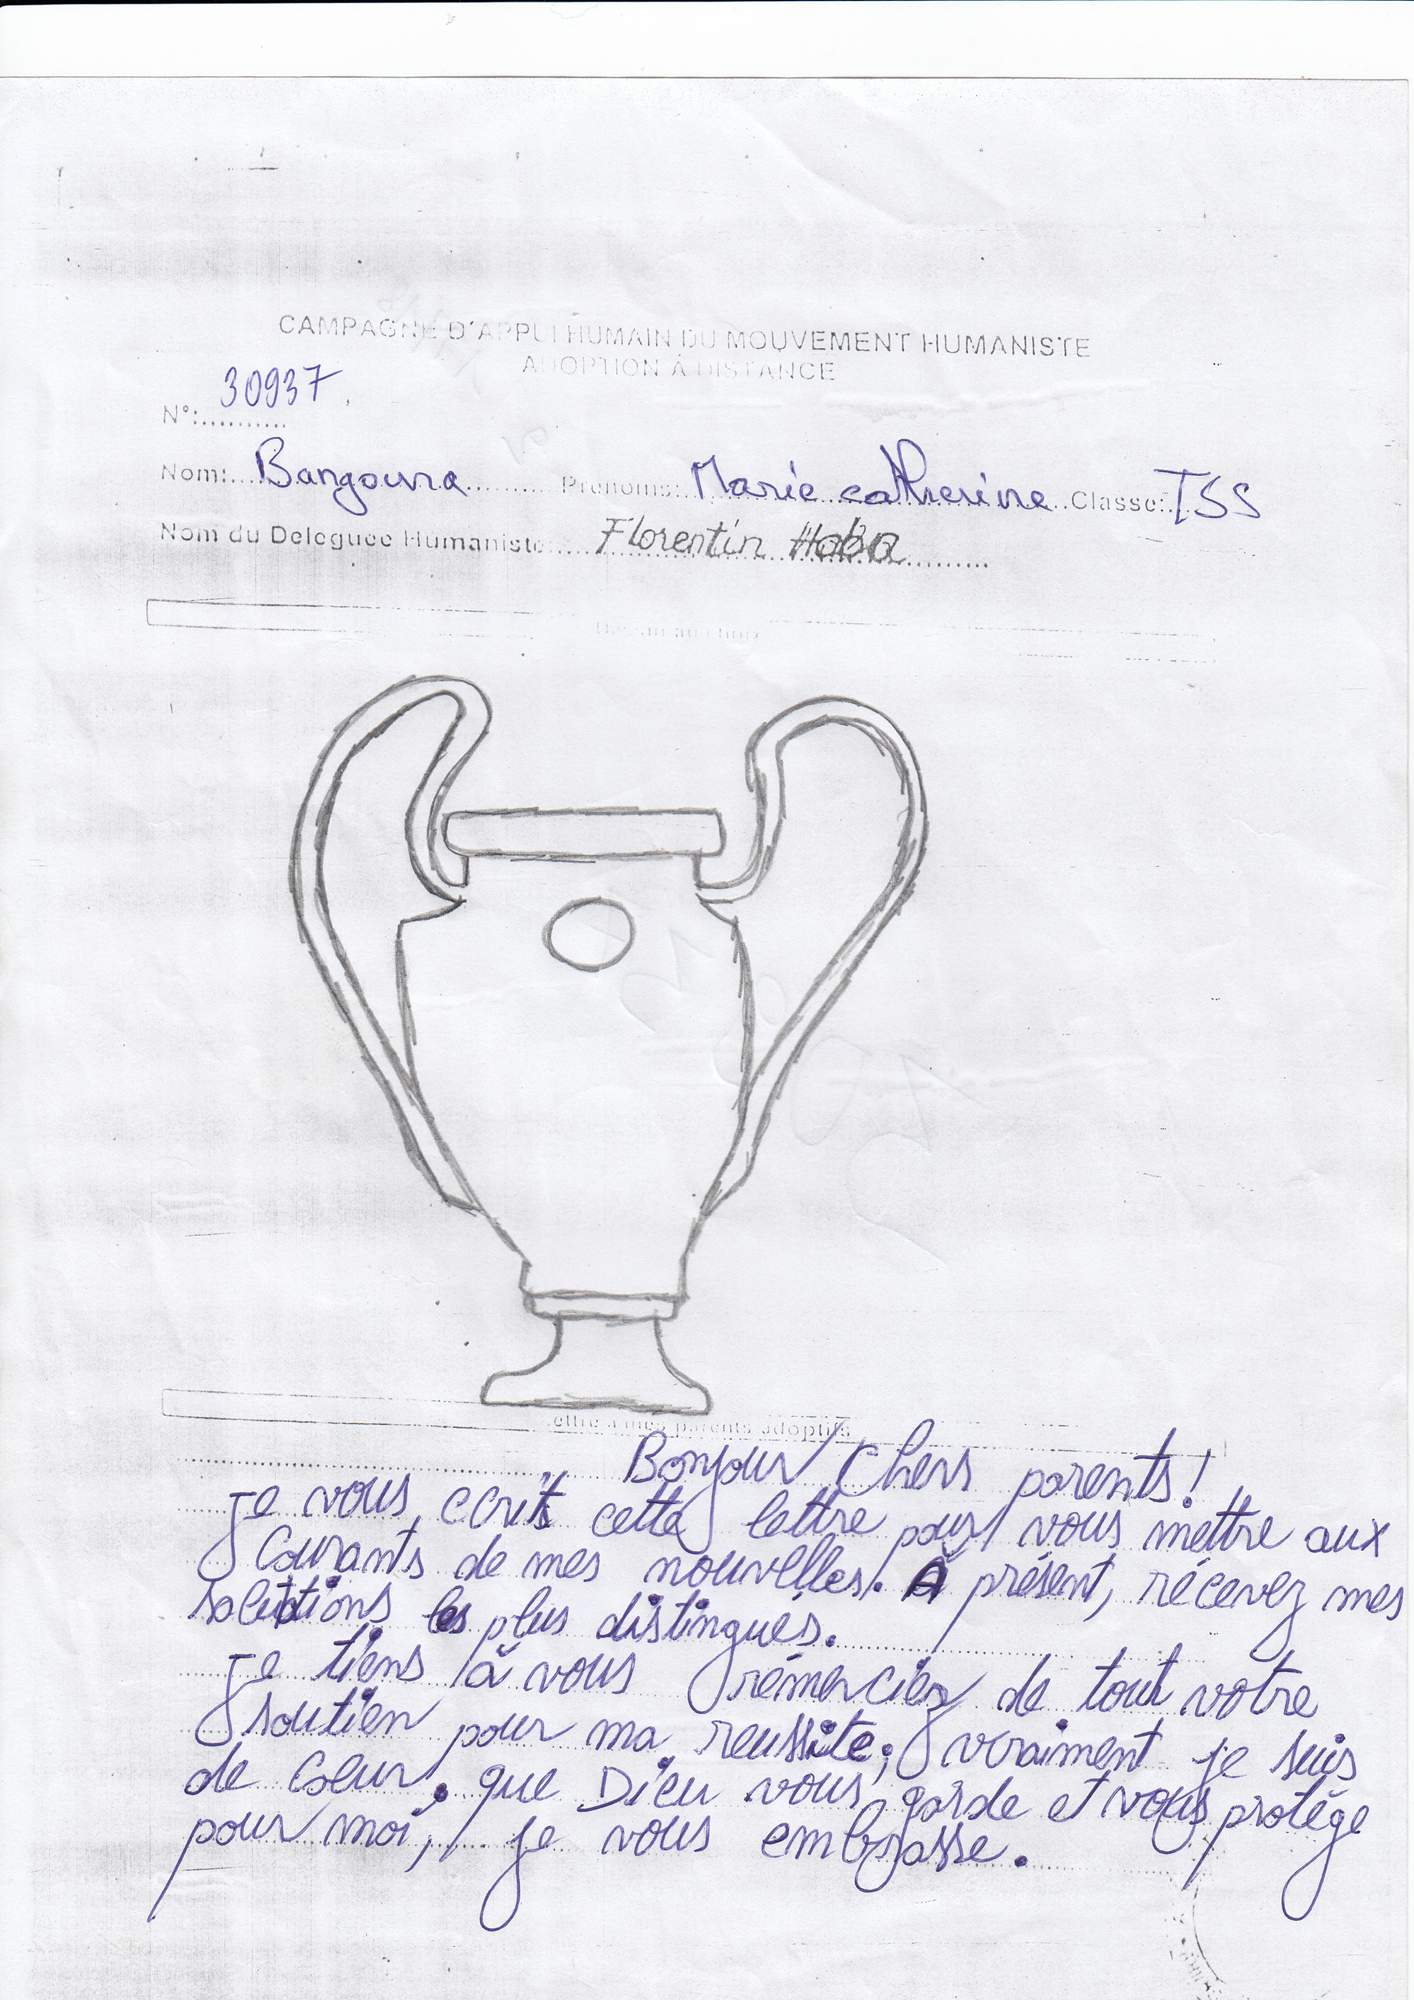 CAMPAGNE D'APPUI HUMAIN DU MOUVEMENT HUMANISTE
ADOPTION À DISTANCE
N°: 30937
Nom: Bangoura Prénoms: Marie catherine Classe: TSS
Nom du Deleguée Humaniste Florentin Haba
Dessin au choix
Lettre à mes parents adoptifs
Bonjour Chers parents!
Je vous ecrit cette lettre pour vous mettre aux
Courants de mes nouvelles. À présent, récevez mes
salutations les plus distingués.
Je tiens à vous rémercier de tout votre
soutien pour ma reussite; vraiment je suis
de Coeur. que Dieu vous garde et vous protége
pour moi, je vous embrasse.